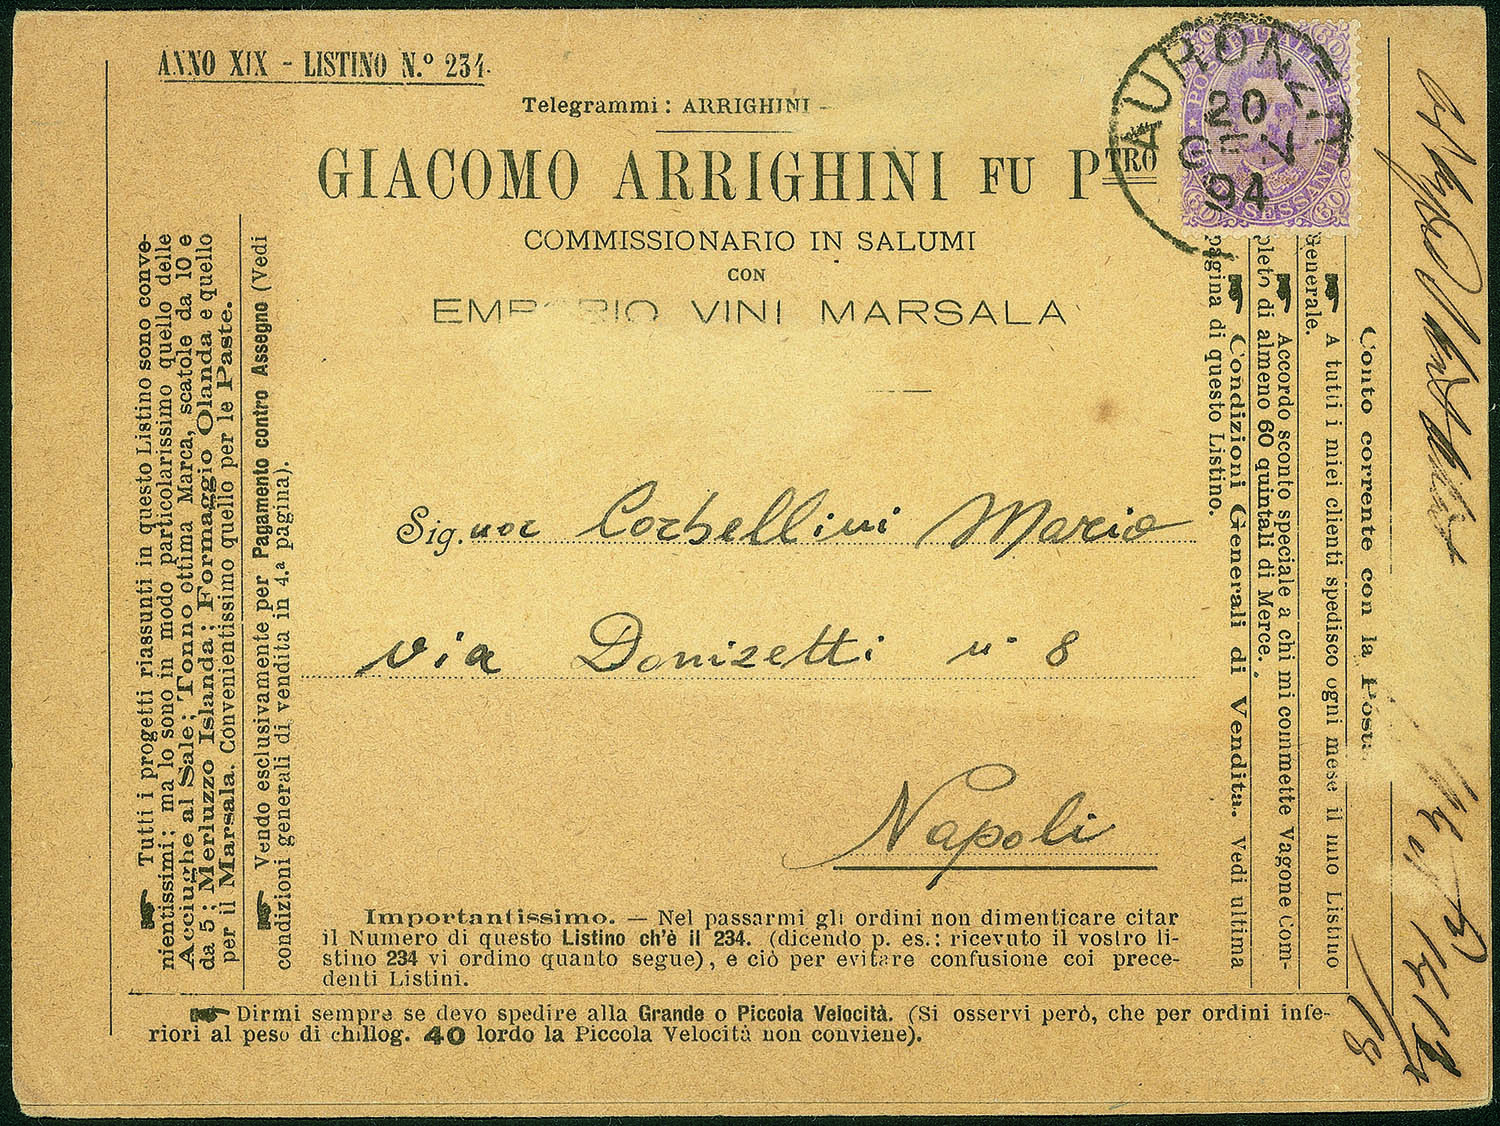 ANNO XIX - LISTINO N.º 234.
Telegrammi: ARRIGHINI -
GIACOMO ARRIGHINI FU PTRO
COMMISSIONARIO IN SALUMI
CON
EMPORIO VINI MARSALA
AURONZ
20
94
POSTE ITALIANE
SESSANTA
60
60
60
60
☛ Tutti i progetti riassunti in questo Listino sono conve-
nientissimi; ma lo sono in modo particolarissimo quello delle
Acciughe al Sale; Tonno ottima Marca, scatole da 10 e
da 5; Merluzzo Islanda; Formaggio Olanda e quello
per il Marsala. Convenientissimo quello per le Paste.
☛ Vendo esclusivamente per Pagamento contro Assegno (Vedi
condizioni generali di vendita in 4.ª pagina).
Sig.nor Corbellini Mario
via Donizetti n° 8
Napoli
Conto corrente con la Posta
☛ A tutti i miei clienti spedisco ogni mese il mio Listino
Generale.
☛ Accordo sconto speciale a chi mi commette Vagone Com-
pleto di almeno 60 quintali di Merce.
☛ Condizioni Generali di Vendita. Vedi ultima
pagina di questo Listino.
Importantissimo. — Nel passarmi gli ordini non dimenticare citar
il Numero di questo Listino ch'è il 234. (dicendo p. es.: ricevuto il vostro li-
stino 234 vi ordino quanto segue), e ciò per evitare confusione coi prece-
denti Listini.
☛ Dirmi sempre se devo spedire alla Grande o Piccola Velocità. (Si osservi però, che per ordini infe-
riori al peso di chillog. 40 lordo la Piccola Velocità non conviene).